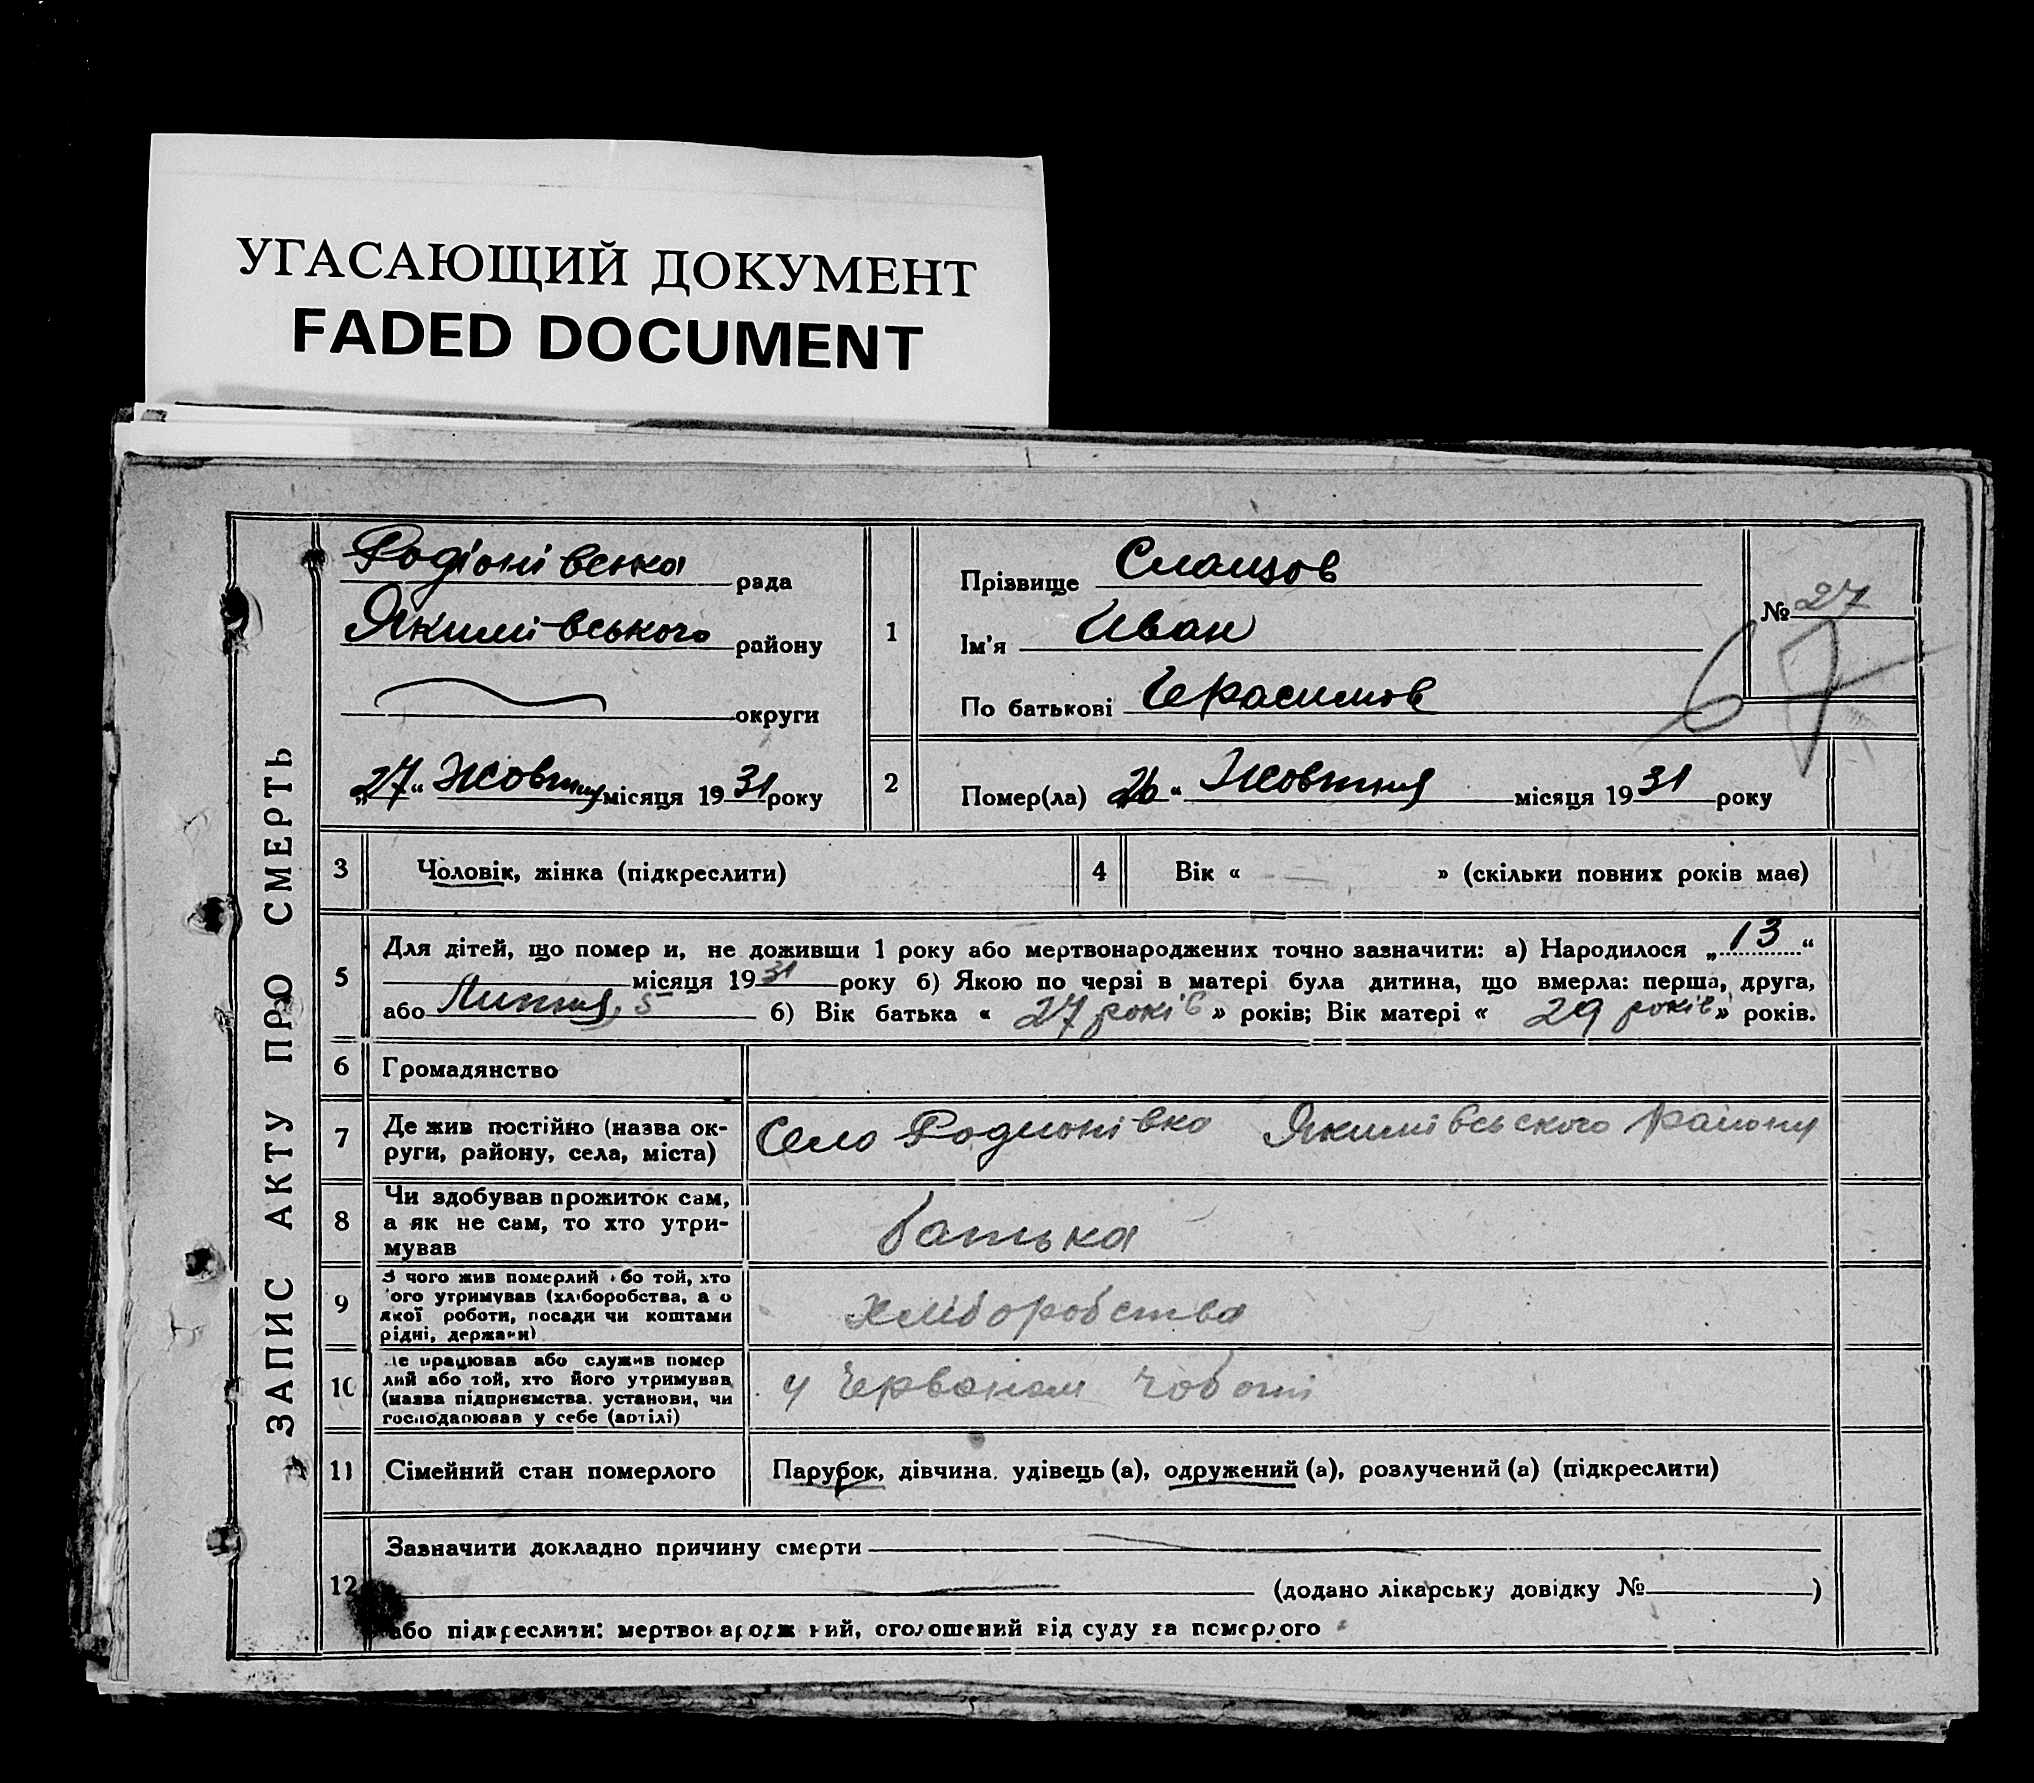 УГАСАЮЩИЙ ДОКУМЕНТ
FADED DOCUMENT
ЗАПИС АКТУ ПРО СМЕРТЬ
Родіонівська рада
Якимівського району
округи
„27“ Жовтня місяця 1931 року
1
Прізвище
Ім'я Иван
По батькові Герасимов
№ 27
67
2
Помер(ла) 26 “ Жовтня місяця 1931 року
3
Чоловік, жінка (підкреслити)
4
Вік « » (скільки повних років має)
5
Для дітей, що помер и, не доживши 1 року або мертвонароджених точно зазначити: а) Народилося „13“
місяця 1931 року б) Якою по черзі в матері була дитина, що вмерла: перша, друга,
або Липня, 5 б) Вік батька « 27 років » років; Вік матері « 29 років » років.
6
Громадянство
7
Де жив постійно (назва ок-
руги, району, села, міста)
Село Родионівка Якимівського району
8
Чи здобував прожиток сам,
а як не сам, то хто утри-
мував
батька
9
З чого жив померлий бо той, хто
ого утримував (хліборобства, а о
якої роботи, посади чи коштами
рідні, держави)
хліборобства
10
е працював або служив помер
лий або той, хто його утримував
(назва підприємства, установи, чи
господарював у себе (артілі)
у Червоном чоботі
11
Сімейний стан померлого
Парубок, дівчина, удівець (а), одружений (а), розлучений (а) (підкреслити)
12
Зазначити докладно причину смерти
(додано лікарську довідку № )
або підкреслити: мертвонародж ний, оголошений від суду за померлого